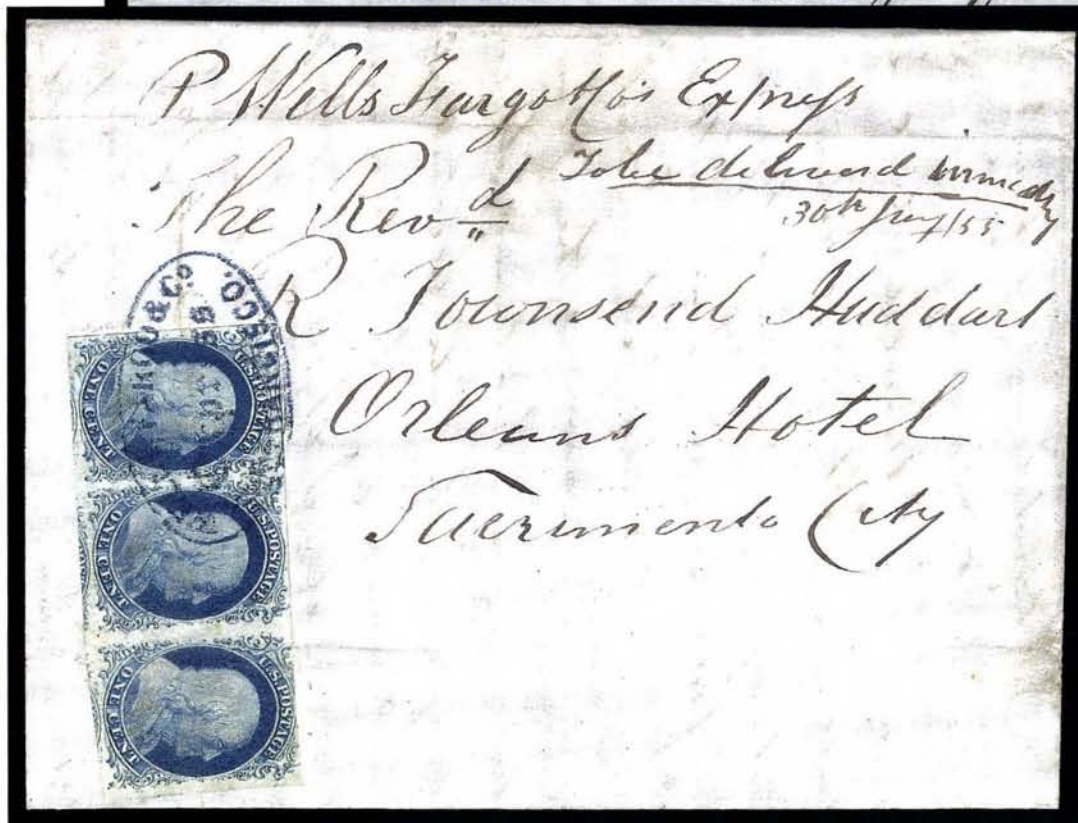 P Wells Fargo & Co's Express
The Revd
To be delivered immedly
30th /55
R Townsend Huddart
Orleans Hotel
Sacrimento City
& Co
CISCO.
U.S. POSTAGE
ONE CENT
U.S. POSTAGE
ONE CENT
U.S. POSTAGE
ONE CENT